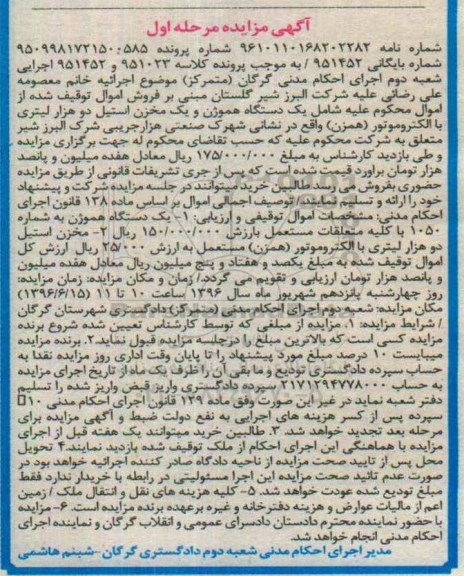 آگهی مزایده مرحله اول
شماره نامه ۹۶۱۰۱۱۰۱۶۸۲۰۲۲۸۲ شماره پرونده ۹۵۰۹۹۸۱۷۲۱۵۰۰۵۸۵
شماره بایگانی ۹۵۱۴۵۲ / به موجب پرونده کلاسه ۹۵۱۰۲۳ و ۹۵۱۴۵۲ اجرایی
شعبه دوم اجرای احکام مدنی گرگان (متمرکز) موضوع اجرائیه خانم معصومه
علی رضائی علیه شرکت البرز شیر گلستان مبنی بر فروش اموال توقیف شده از
اموال محکوم علیه شامل یک دستگاه هموژن و یک مخزن استیل دو هزار لیتری
با الکتروموتور (همزن) واقع در نشانی شهرک صنعتی هزارجریبی شرک البرز شیر
متعلق به شرکت محکوم علیه که حسب تقاضای محکوم له جهت برگزاری مزایده
و طی بازدید کارشناس به مبلغ ۱۷۵/۰۰۰/۰۰۰ ریال معادل هفده میلیون و پانصد
هزار تومان براورد قیمت شده است که پس از جری تشریفات قانونی از طریق مزایده
حضوری بفروش می رسد طالبین خرید میتوانند در جلسه مزایده شرکت و پیشنهاد
خود را ارائه و تسلیم نمایند/ توصیف اجمالی اموال بر اساس ماده ۱۳۸ قانون اجرای
احکام مدنی: مشخصات اموال توقیفی و ارزیابی: ۱- یک دستگاه هموژن به شماره
۱۰۵۰ با کلیه متعلقات مستعمل بارزش ۱۵۰/۰۰۰/۰۰۰ ریال ۲- مخزن استیل
دو هزار لیتری با الکتروموتور (همزن) مستعمل به ارزش ۲۵/۰۰۰ ریال ارزش کل
اموال توقیف شده به مبلغ یکصد و هفتاد و پنج میلیون ریال معادل هفده میلیون
و پانصد هزار تومان ارزیابی و تقویم می گردد./ زمان و مکان مزایده: زمان مزایده:
روز چهارشنبه پانزدهم شهریور ماه سال ۱۳۹۶ ساعت ۱۰ تا ۱۱ (۱۳۹۶/۶/۱۵)
مکان مزایده: شعبه دوم اجرای احکام مدنی (متمرکز) دادگستری شهرستان گرگان
/ شرایط مزایده: ۱. مزایده از مبلغی که توسط کارشناس تعیین شده شروع برنده
مزایده کسی است که بالاترین مبلغ را درجلسه مزایده قبول نماید.۲. برنده مزایده
میبایست ۱۰ درصد مبلغ مورد پیشنهاد را تا پایان وقت اداری روز مزایده نقدا به
حساب سپرده دادگستری تودیع و مابقی آن را ظرف یک ماه از تاریخ اجرای مزایده
به حساب ۲۱۷۱۲۹۴۷۷۸۰۰۰ سپرده دادگستری واریز قبض واریز شده را تسلیم
دفتر شعبه نماید در غیر این صورت وفق ماده ۱۲۹ قانون اجرای احکام مدنی ۱۰
سپرده پس از کسر هزینه های اجرایی به نفع دولت ضبط و آگهی مزایده برای
مرحله بعد تجدید خواهد شد. ۳. طالبین خرید میتوانند یک هفته قبل از اجرای
مزایده با هماهنگی این اجرای احکام از ملک توقیف شده بازدید نمایند.۴ تحویل
محل پس از تایید صحت مزایده از ناحیه دادگاه صادر کننده اجرائیه خواهد بود در
صورت عدم تائید صحت مزایده این اجرا مسئولیتی در رابطه با خریدار ندارد فقط
مبلغ تودیع شده عودت خواهد شد. ۵- کلیه هزینه های نقل و انتقال ملک / زمین
اعم از مالیات عوارض و هزینه دفترخانه و غیره برعهده برنده مزایده است. ۶- مزایده
با حضور نماینده محترم دادستان دادسرای عمومی و انقلاب گرگان و نماینده اجرای
احکام مدنی انجام خواهد شد.
مدیر اجرای احکام مدنی شعبه دوم دادگستری گرگان -شبنم هاشمی